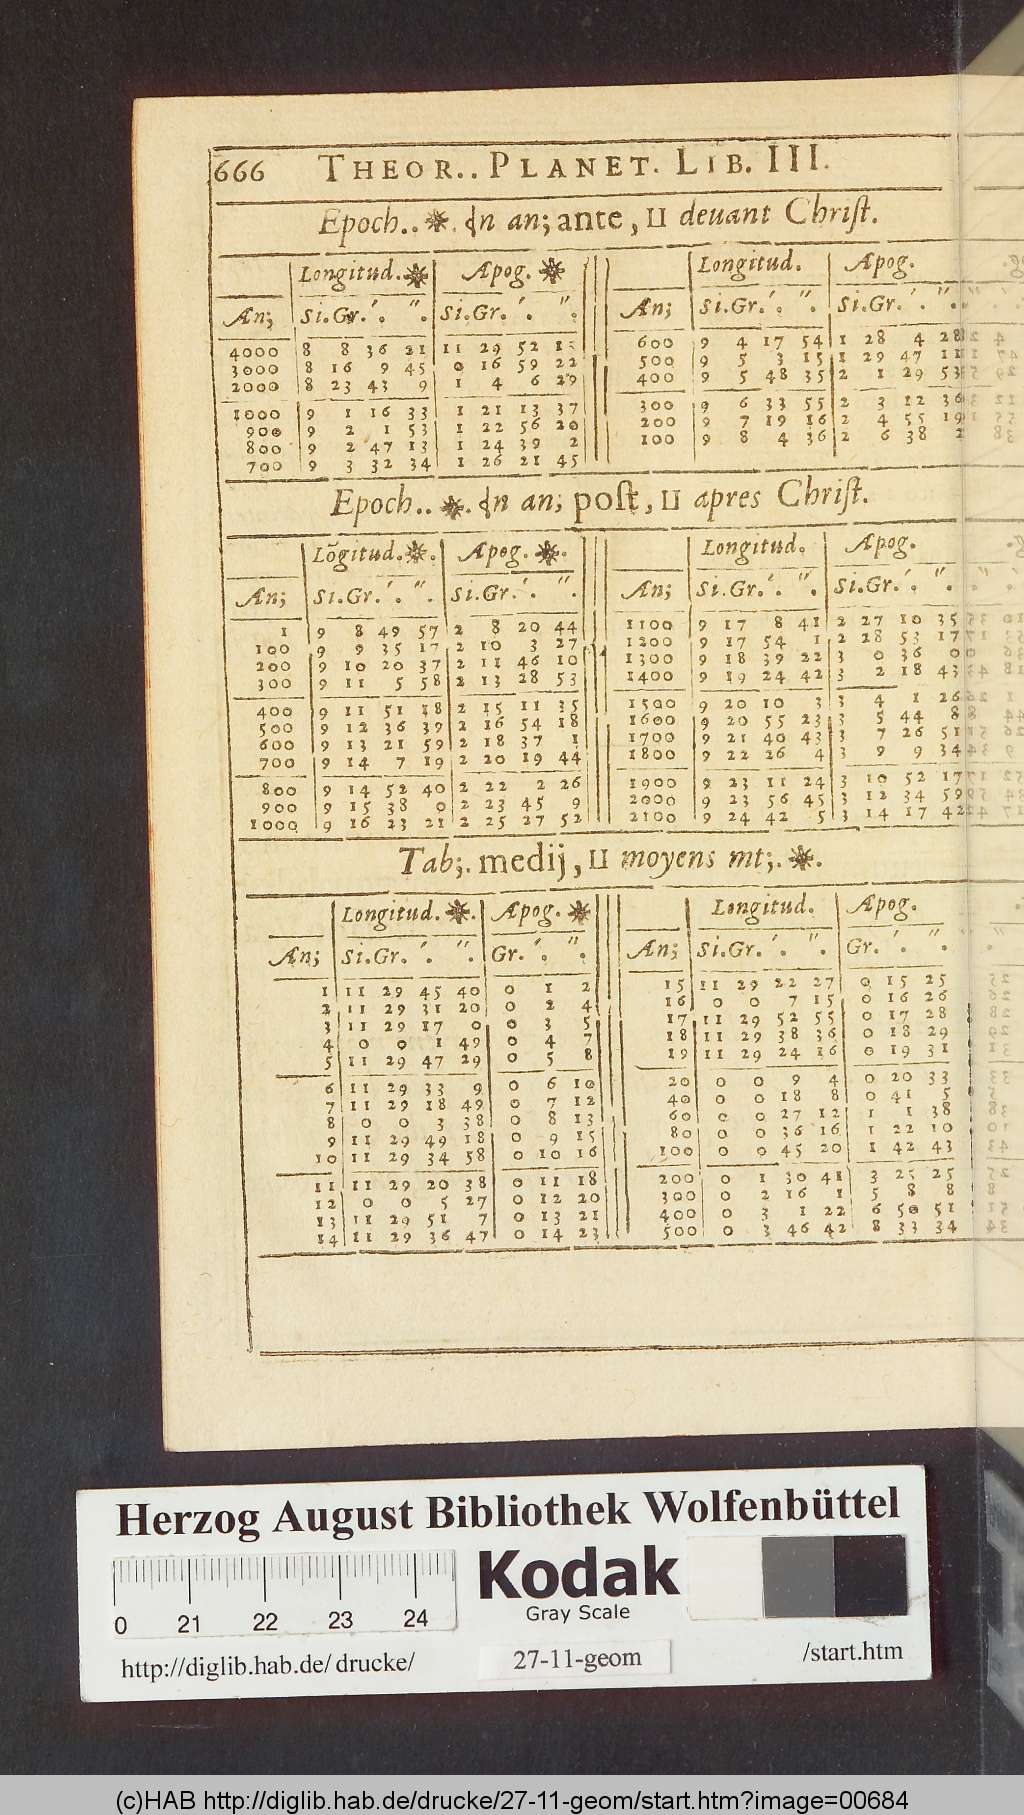 666 THEOR.. PLANET. LIB. III.
Epoch.. ☼. in an; ante, II devant Chriſt.
Longitud. ☼ Apog. ☼ Longitud. Apog.
An; Si.Gr.′. ″. Si.Gr.′. ″. An; Si.Gr.′. ″. Si.Gr.′. ″.
4000 8 8 36 21 11 29 52 15 600 9 4 17 54 1 28 4 28
3000 8 16 9 45 0 16 59 22 500 9 5 3 15 1 29 47 11
2000 8 23 43 9 1 4 6 29 400 9 5 48 35 2 1 29 53
1000 9 1 16 33 1 21 13 37 300 9 6 33 55 2 3 12 36
900 9 2 1 53 1 22 56 20 200 9 7 19 16 2 4 55 19
800 9 2 47 13 1 24 39 2 100 9 8 4 36 2 6 38 2
700 9 3 32 34 1 26 21 45
Epoch.. ☼. in an; poſt, II apres Chriſt.
Lõgitud. ☼. Apog. ☼. Longitud. Apog.
An; Si.Gr.′. ″. Si.Gr.′. ″. An; Si.Gr.′. ″. Si.Gr.′. ″.
1 9 8 49 57 2 8 20 44 1100 9 17 8 41 2 27 10 35
100 9 9 35 17 2 10 3 27 1200 9 17 54 1 2 28 53 17
200 9 10 20 37 2 11 46 10 1300 9 18 39 22 3 0 36 0
300 9 11 5 58 2 13 28 53 1400 9 19 24 42 3 2 18 43
400 9 11 51 18 2 15 11 35 1500 9 20 10 3 3 4 1 26
500 9 12 36 39 2 16 54 18 1600 9 20 55 23 3 5 44 8
600 9 13 21 59 2 18 37 1 1700 9 21 40 43 3 7 26 51
700 9 14 7 19 2 20 19 44 1800 9 22 26 4 3 9 9 34
800 9 14 52 40 2 22 2 26 1900 9 23 11 24 3 10 52 17
900 9 15 38 0 2 23 45 9 2000 9 23 56 45 3 12 34 59
1000 9 16 23 21 2 25 27 52 2100 9 24 42 5 3 14 17 42
Tab;. medij, II moyens mt;. ☼.
Longitud. ☼. Apog. ☼ Longitud. Apog.
An; Si.Gr.′. ″. Gr.′. ″. An; Si.Gr.′. ″. Gr.′. ″.
1 11 29 45 40 0 1 2 15 11 29 22 27 0 15 25
2 11 29 31 20 0 2 4 16 0 0 7 15 0 16 26
3 11 29 17 0 0 3 5 17 11 29 52 55 0 17 28
4 0 0 1 49 0 4 7 18 11 29 38 36 0 18 29
5 11 29 47 29 0 5 8 19 11 29 24 16 0 19 31
6 11 29 33 9 0 6 10 20 0 0 9 4 0 20 33
7 11 29 18 49 0 7 12 40 0 0 18 8 0 41 5
8 0 0 3 38 0 8 13 60 0 0 27 12 1 1 38
9 11 29 49 18 0 9 15 80 0 0 36 16 1 22 10
10 11 29 34 58 0 10 16 100 0 0 45 20 1 42 43
11 11 29 20 38 0 11 18 200 0 1 30 41 3 25 25
12 0 0 5 27 0 12 20 300 0 2 16 1 5 8 8
13 11 29 51 7 0 13 21 400 0 3 1 22 6 50 51
14 11 29 36 47 0 14 23 500 0 3 46 42 8 33 34
Herzog August Bibliothek Wolfenbüttel
Kodak
Gray Scale
0 21 22 23 24
http://diglib.hab.de/drucke/ 27-11-geom /start.htm
(c)HAB http://diglib.hab.de/drucke/27-11-geom/start.htm?image=00684